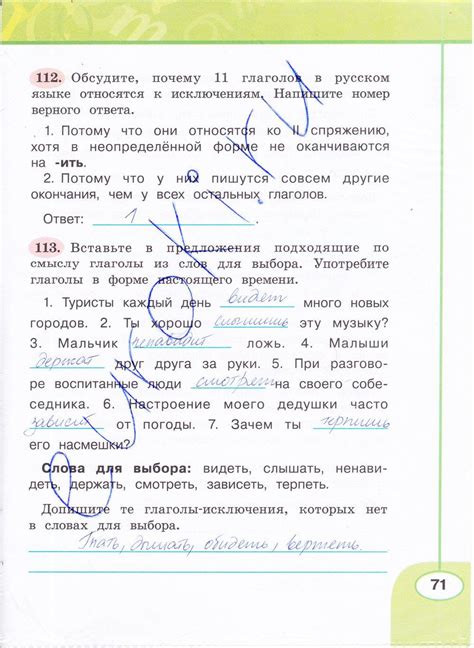 112. Обсудите, почему 11 глаголов в русском
языке относятся к исключениям. Напишите номер
верного ответа.
1. Потому что они относятся ко II спряжению,
хотя в неопределённой форме не оканчиваются
на -ить.
2. Потому что у них пишутся совсем другие
окончания, чем у всех остальных глаголов.
Ответ: 1
113. Вставьте в предложения подходящие по
смыслу глаголы из слов для выбора. Употребите
глаголы в форме настоящего времени.
1. Туристы каждый день видят много новых
городов. 2. Ты хорошо слышишь эту музыку?
3. Мальчик ненавидит ложь. 4. Малыши
держат друг друга за руки. 5. При разгово-
ре воспитанные люди смотрят на своего собе-
седника. 6. Настроение моего дедушки часто
зависит от погоды. 7. Зачем ты терпишь
его насмешки?
Слова для выбора: видеть, слышать, ненави-
деть, держать, смотреть, зависеть, терпеть.
Допишите те глаголы-исключения, которых нет
в словах для выбора.
Гнать, дышать, обидеть, вертеть.
71